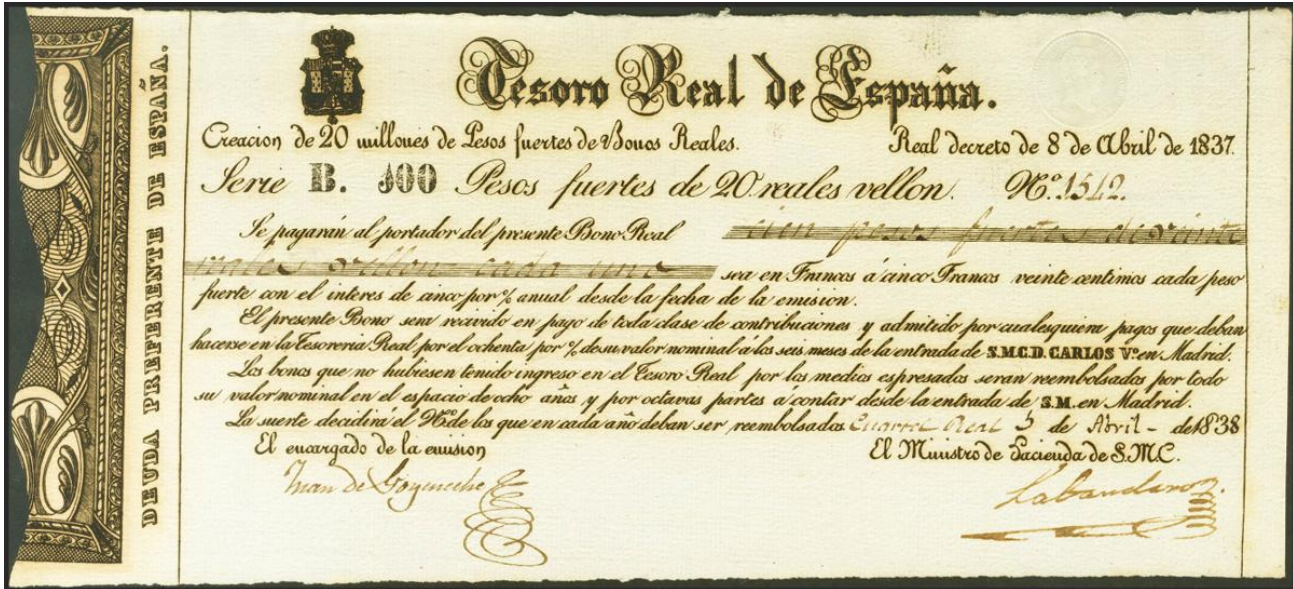 DEUDA PREFERENTE DE ESPAÑA.
Tesoro Real de España.
Creacion de 20 millones de Pesos fuertes de Bonos Reales. Real decreto de 8 de Abril de 1837.
Serie B. 100 Pesos fuertes de 20 reales vellon. Nº 1512.
Se pagarán al portador del presente Bono Real cien pesos fuertes de veinte
reales vellon cada uno sea en Francos á cinco Francos veinte centimos cada peso
fuerte con el interes de cinco por % anual desde la fecha de la emision.
El presente Bono sera recivido en pago de toda clase de contribuciones y admitido por cualesquiera pagos que deban
hacerse en la Tesoreria Real por el ochenta por % de su valor nominal á los seis meses de la entrada de S.M.C.D. CARLOS Vº en Madrid.
Los bonos que no hubiesen tenido ingreso en el Tesoro Real por los medios espresados seran reembolsados por todo
su valor nominal en el espacio de ocho años y por octavas partes a contar desde la entrada de S.M. en Madrid.
La suerte decidirá el Nº de los que en cada año deban ser reembolsados Cuartel Real 5 de Abril - de 1838
El encargado de la emision El Ministro de Hacienda de S.M.C.
Juan de Goyeneche Labandero